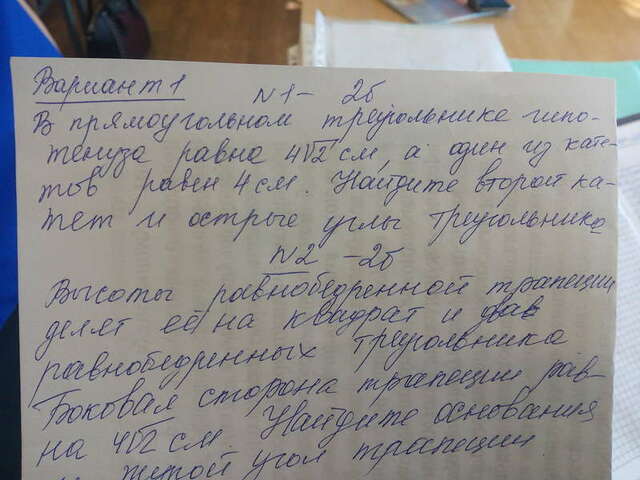 Вариант 1
N1 - 2б
В прямоугольном треугольнике гипо-
тенуза равна 4√2 см, а один из кате-
тов равен 4 см. Найдите второй ка-
тет и острые углы треугольника
N2 - 2б
Высоты равнобедренной трапеции
делят её на квадрат и два
равнобедренных треугольника
Боковая сторона трапеции рав-
на 4√2 см. Найдите основания
и тупой угол трапеции.